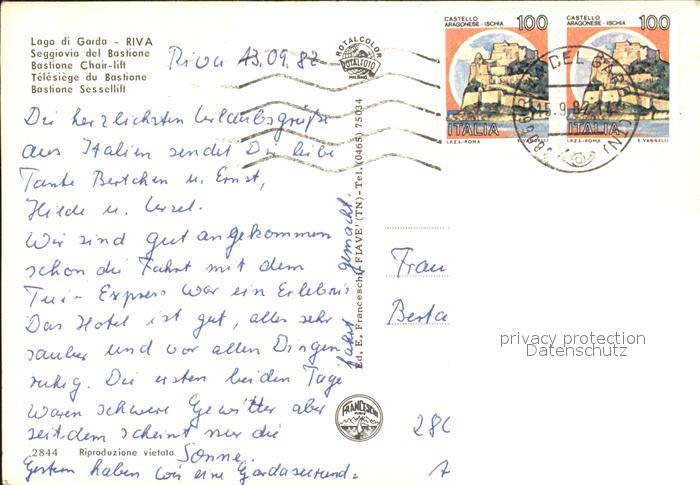 Lago di Garda - RIVA
Seggiovia del Bastione
Bastione Chair-lift
Télésiège du Bastione
Bastione Sessellift
Riva 13.09.82
ROTALCOLOR
ROTALFOTO
MILANO
CASTELLO
ARAGONESE - ISCHIA 100
ITALIA
I.P.Z.S.-ROMA E. VANNELLI
CASTELLO
ARAGONESE - ISCHIA 100
ITALIA
I.P.Z.S.-ROMA E. VANNELLI
DEL GARDA
15.9.82
Die herzlichsten Urlaubsgrüße
aus Italien sendet Dir liebe
Tante Bertchen u. Ernst,
Hilde u. Ursel.
Wir sind gut angekommen
schon die Fahrt mit dem
Tui - Express war ein Erlebnis
Das Hotel ist gut, alles sehr
sauber und vor allen Dingen
ruhig. Die ersten beiden Tage
waren schwere Gewitter aber
seitdem scheint nur die
Sonne.
Gestern haben wir eine Gardaseerund=
fahrt gemacht.
Ed. E. Franceschi - FIAVE' (TN) - Tel. (0465) 75034
Frau
Berta
privacy protection
Datenschutz
FRANCESCHI
280
2844 Riproduzione vietata